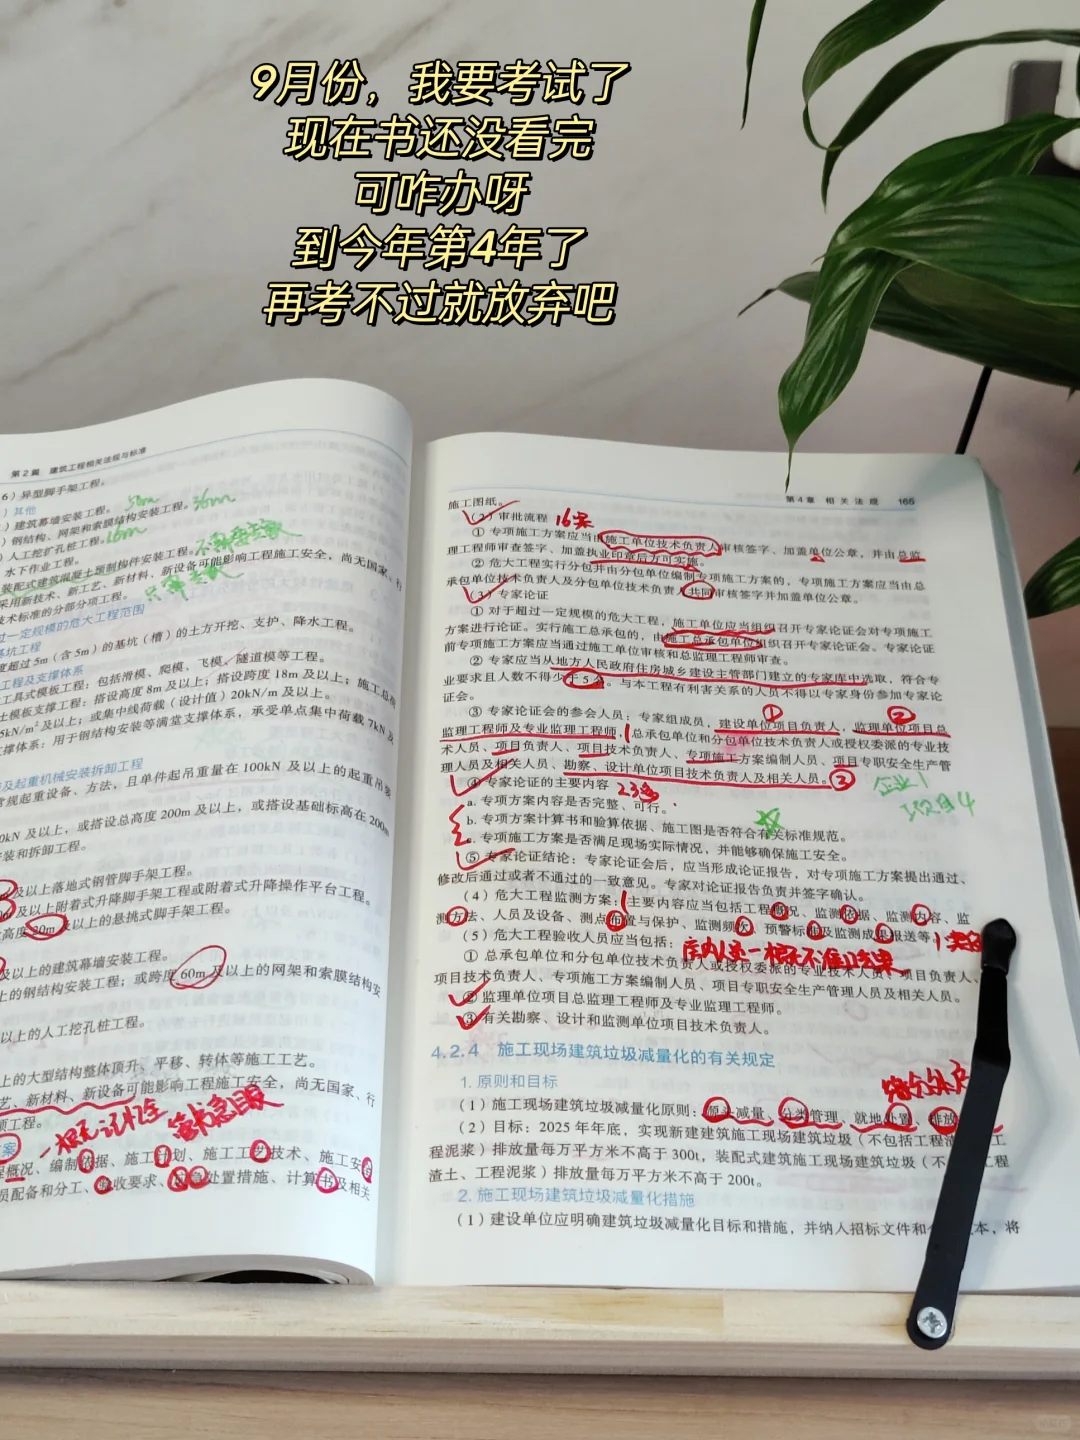 9月份，我要考试了
现在书还没看完
可咋办呀
到今年第4年了
再考不过就放弃吧
第2篇 建筑工程相关法规与标准
6）异型脚手架工程。
）其他
）建筑幕墙安装工程。 50m
）钢结构、网架和索膜结构安装工程。 36m
）人工挖扩孔桩工程。 16m
水下作业工程。
装配式建筑混凝土预制构件安装工程。
采用新技术、新工艺、新材料、新设备可能影响工程施工安全，尚无国家、行
技术标准的分部分项工程。
过一定规模的危大工程范围
基坑工程
度超过5m（含5m）的基坑（槽）的土方开挖、支护、降水工程。
工程及支撑体系
工具式模板工程：包括滑模、爬模、飞模、隧道模等工程。
土模板支撑工程：搭设高度8m及以上；搭设跨度18m及以上；施工总荷
5kN/m²及以上；或集中线荷载（设计值）20kN/m及以上。
支撑体系：用于钢结构安装等满堂支撑体系，承受单点集中荷载7kN及
及起重机械安装拆卸工程
常规起重设备、方法，且单件起吊重量在100kN及以上的起重吊装
0kN及以上，或搭设总高度200m及以上，或搭设基础标高在200m
安装和拆卸工程。
及以上落地式钢管脚手架工程。
及以上附着式升降脚手架工程或附着式升降操作平台工程。
高度20m及以上的悬挑式脚手架工程。
及以上的建筑幕墙安装工程。
上的钢结构安装工程；或跨度60m及以上的网架和索膜结构安
以上的人工挖孔桩工程。
上的大型结构整体顶升、平移、转体等施工工艺。
艺、新材料、新设备可能影响工程施工安全，尚无国家、行
项工程。
案
程概况、编制依据、施工计划、施工工艺技术、施工安
员配备和分工、验收要求、应急处置措施、计算书及相关
第4章 相关法规 165
施工图纸。
（2）审批流程
① 专项施工方案应当由施工单位技术负责人审核签字、加盖单位公章，并由总监
理工程师审查签字、加盖执业印章后方可实施。
② 危大工程实行分包并由分包单位编制专项施工方案的，专项施工方案应当由总
承包单位技术负责人及分包单位技术负责人共同审核签字并加盖单位公章。
（3）专家论证
① 对于超过一定规模的危大工程，施工单位应当组织召开专家论证会对专项施工
方案进行论证。实行施工总承包的，由施工总承包单位组织召开专家论证会。专家论证
前专项施工方案应当通过施工单位审核和总监理工程师审查。
② 专家应当从地方人民政府住房城乡建设主管部门建立的专家库中选取，符合专
业要求且人数不得少于5名。与本工程有利害关系的人员不得以专家身份参加专家论
证会。
③ 专家论证会的参会人员：专家组成员，建设单位项目负责人，监理单位项目总
监理工程师及专业监理工程师，总承包单位和分包单位技术负责人或授权委派的专业技
术人员、项目负责人、项目技术负责人、专项施工方案编制人员、项目专职安全生产管
理人员及相关人员、勘察、设计单位项目技术负责人及相关人员。
④ 专家论证的主要内容
a. 专项方案内容是否完整、可行。
b. 专项方案计算书和验算依据、施工图是否符合有关标准规范。
c. 专项施工方案是否满足现场实际情况，并能够确保施工安全。
⑤ 专家论证结论：专家论证会后，应当形成论证报告，对专项施工方案提出通过、
修改后通过或者不通过的一致意见。专家对论证报告负责并签字确认。
（4）危大工程监测方案：主要内容应当包括工程概况、监测依据、监测内容、监
测方法、人员及设备、测点布置与保护、监测频次、预警标准及监测成果报送等。
（5）危大工程验收人员应当包括：
① 总承包单位和分包单位技术负责人或授权委派的专业技术人员、项目负责人、
项目技术负责人、专项施工方案编制人员、项目专职安全生产管理人员及相关人员。
② 监理单位项目总监理工程师及专业监理工程师。
③ 有关勘察、设计和监测单位项目技术负责人。
4.2.4 施工现场建筑垃圾减量化的有关规定
1. 原则和目标
（1）施工现场建筑垃圾减量化原则：源头减量、分类管理、就地处置、排放
（2）目标：2025年年底，实现新建建筑施工现场建筑垃圾（不包括工程渣 工
程泥浆）排放量每万平方米不高于300t，装配式建筑施工现场建筑垃圾（不 工程
渣土、工程泥浆）排放量每万平方米不高于200t。
2. 施工现场建筑垃圾减量化措施
（1）建设单位应明确建筑垃圾减量化目标和措施，并纳入招标文件和 本，将